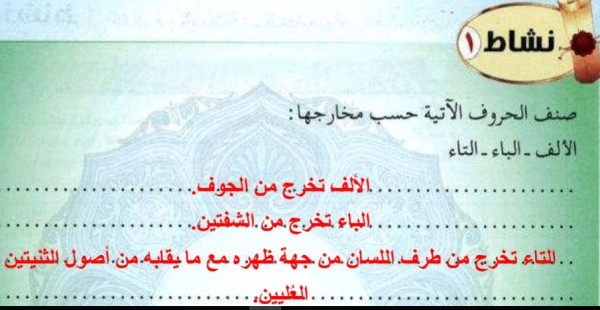 نشاط ١
صنف الحروف الآتية حسب مخارجها:
الألف - الباء - التاء
الألف تخرج من الجوف.
الباء تخرج من الشفتين.
التاء تخرج من طرف اللسان من جهة ظهره مع ما يقابله من أصول الثنيتين
العُليين.